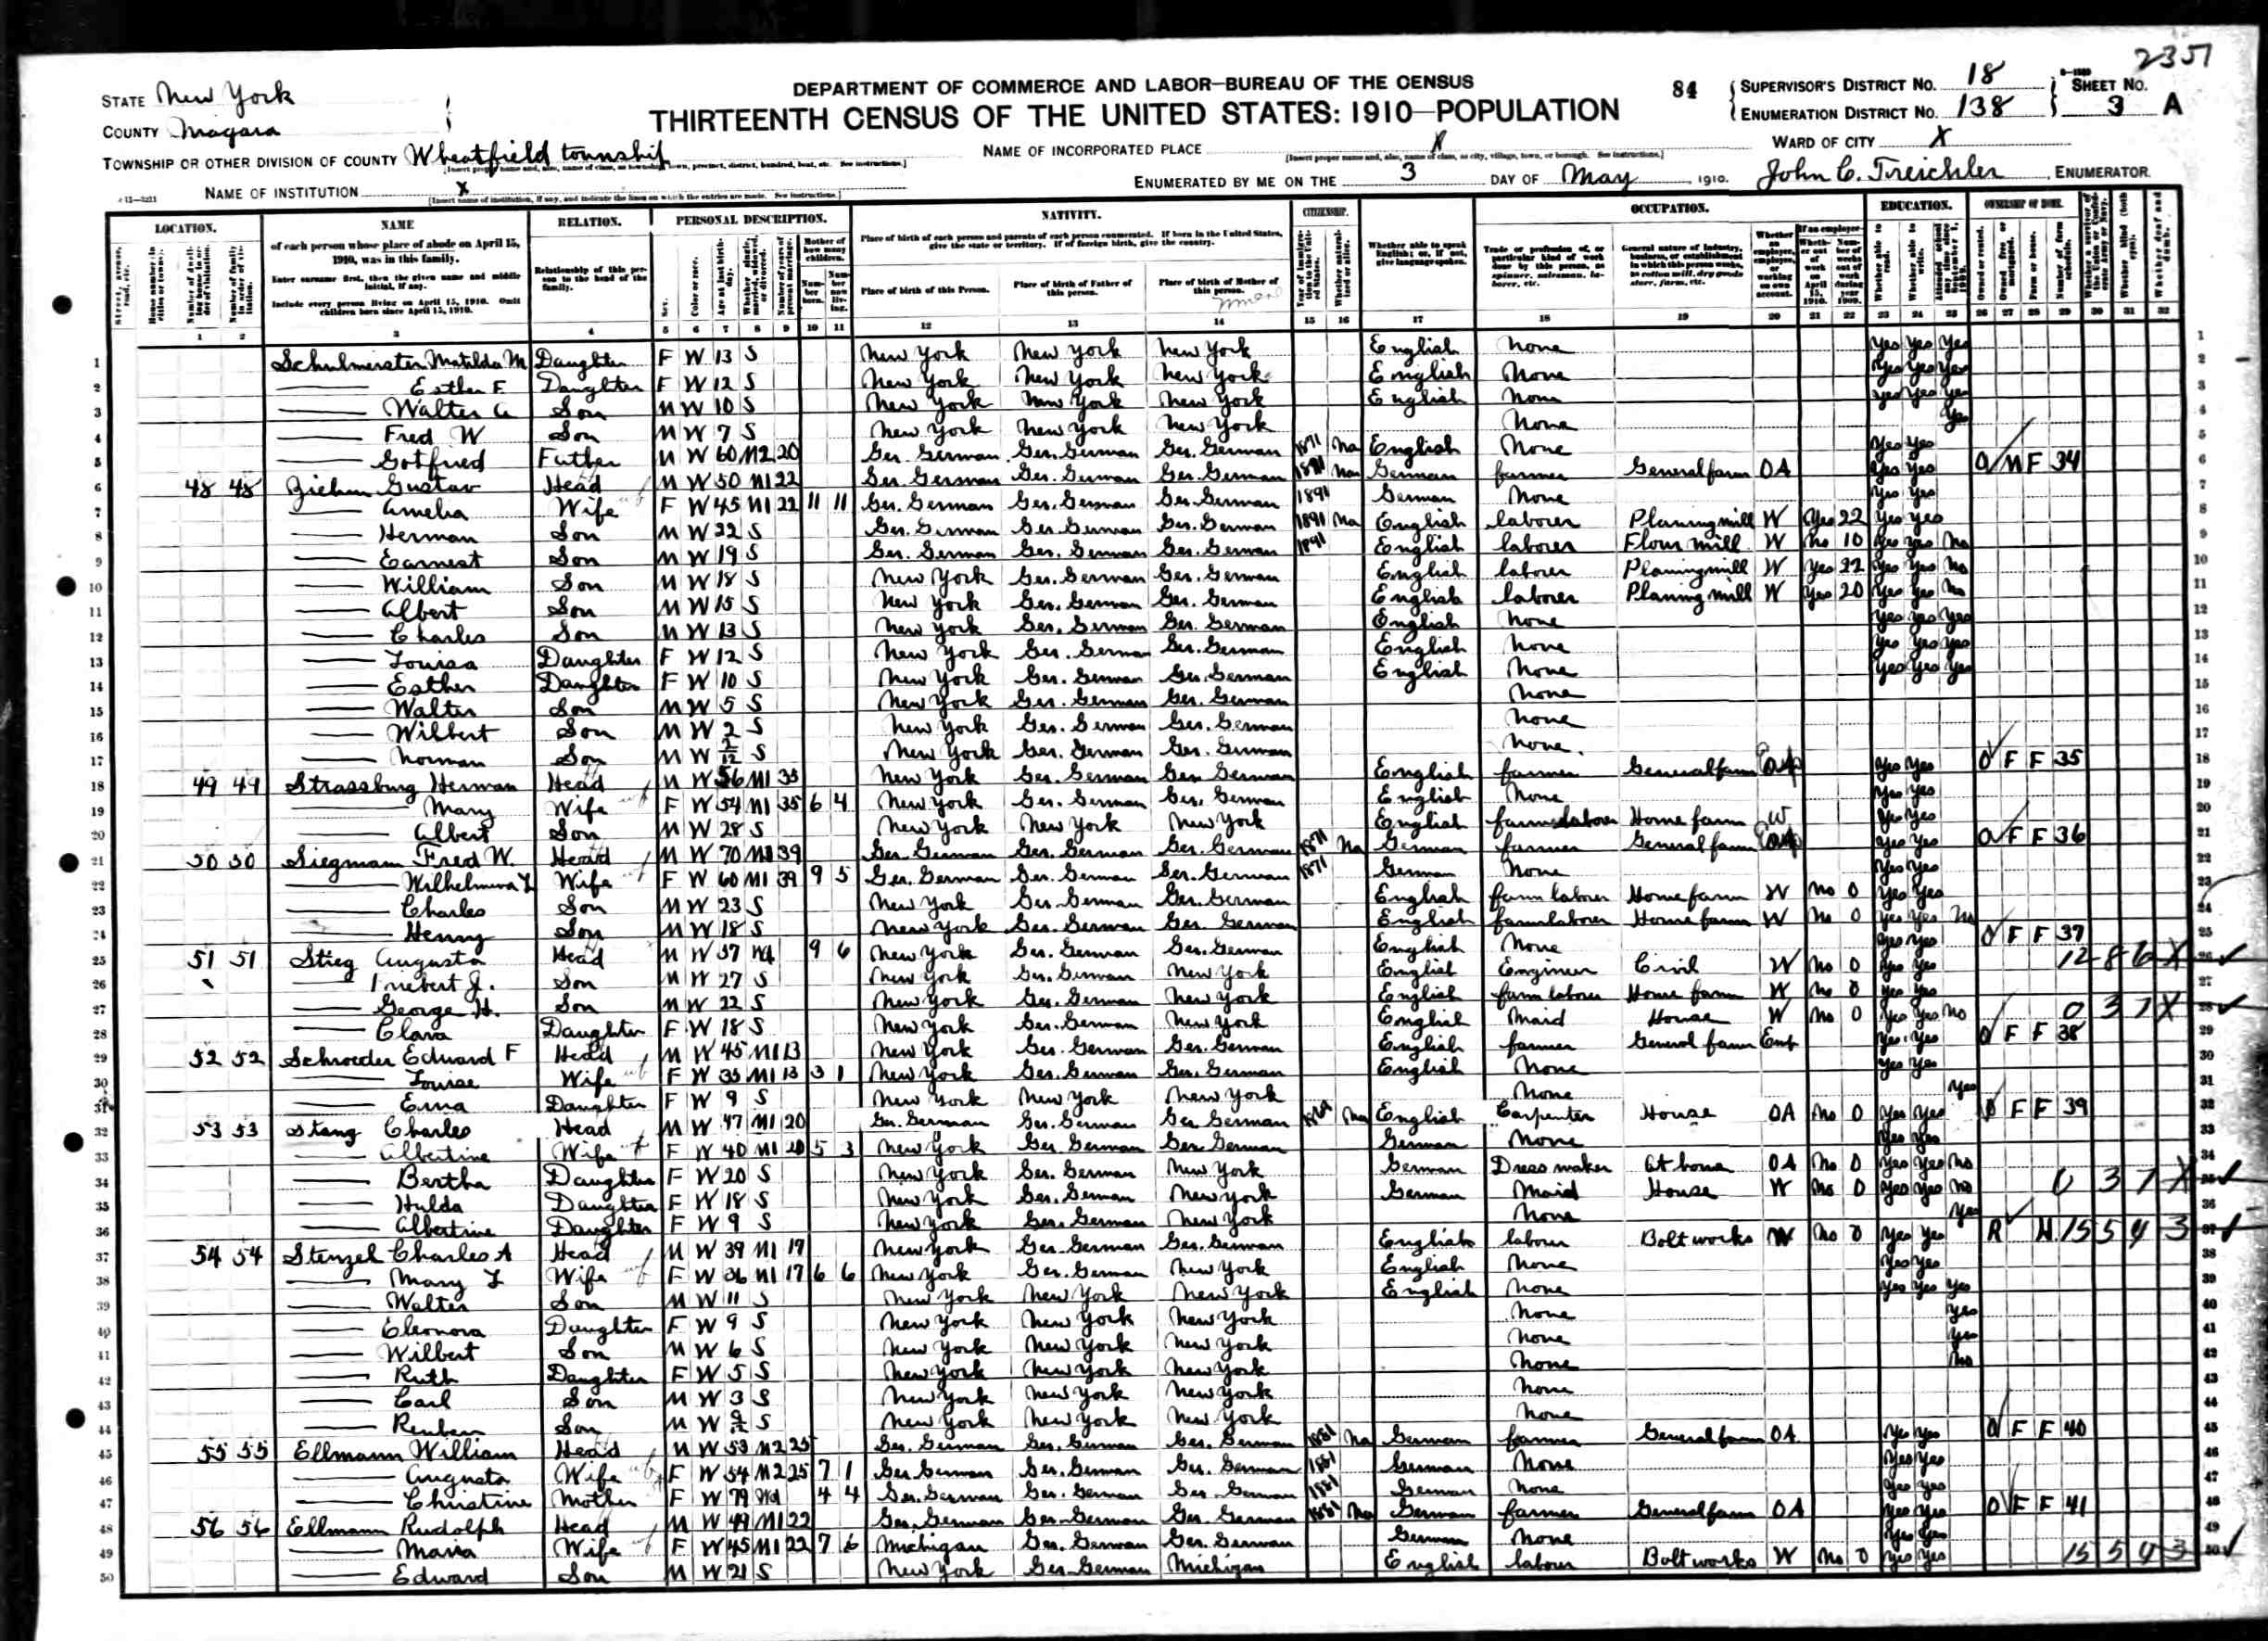 2351
STATE New York
COUNTY Niagara
TOWNSHIP OR OTHER DIVISION OF COUNTY Wheatfield township
NAME OF INSTITUTION X
DEPARTMENT OF COMMERCE AND LABOR—BUREAU OF THE CENSUS
THIRTEENTH CENSUS OF THE UNITED STATES: 1910—POPULATION
NAME OF INCORPORATED PLACE X
ENUMERATED BY ME ON THE 3 DAY OF May, 1910.
84
SUPERVISOR'S DISTRICT NO. 18
ENUMERATION DISTRICT NO. 138
SHEET NO. 3 A
WARD OF CITY X
John C. Treichler, ENUMERATOR.
LOCATION. NAME RELATION. PERSONAL DESCRIPTION. NATIVITY. CITIZENSHIP. OCCUPATION. EDUCATION. OWNERSHIP OF HOME.
of each person whose place of abode on April 15, 1910, was in this family.
Enter surname first, then the given name and middle initial, if any.
Include every person living on April 15, 1910. Omit children born since April 15, 1910.
Relationship of this person to the head of the family.
Place of birth of each person and parents of each person enumerated. If born in the United States, give the state or territory. If of foreign birth, give the country.
Place of birth of this Person. Place of birth of Father of this person. Place of birth of Mother of this person.
Whether able to speak English; or, if not, give language spoken.
1 2 3 4 5 6 7 8 9 10 11 12 13 14 15 16 17 18 19 20 21 22 23 24 25 26 27 28 29 30 31 32
1 Schulmeister Matilda M Daughter F W 13 S New York New York New York English None Yes Yes Yes
2 Esther F Daughter F W 12 S New York New York New York English None Yes Yes Yes
3 Walter Son M W 10 S New York New York New York English None Yes Yes Yes
4 Fred W Son M W 7 S New York New York New York None Yes
5 Gotfried Father M W 60 M2 20 Ger. German Ger. German Ger. German 1871 Na English None Yes Yes
6 48 48 Ziehm Gustav Head M W 50 M1 22 Ger. German Ger. German Ger. German 1891 Na German farmer General farm OA Yes Yes O M F 34
7 Amelia Wife F W 45 M1 22 11 11 Ger. German Ger. German Ger. German 1891 German None Yes Yes
8 Herman Son M W 22 S Ger. German Ger. German Ger. German 1891 Na English laborer Planing mill W Yes 22 Yes Yes
9 Earnest Son M W 19 S Ger. German Ger. German Ger. German 1891 English laborer Flour mill W No 10 Yes Yes No
10 William Son M W 18 S New York Ger. German Ger. German English laborer Planing mill W Yes 22 Yes Yes No
11 Albert Son M W 15 S New York Ger. German Ger. German English laborer Planing mill W Yes 20 Yes Yes No
12 Charles Son M W 13 S New York Ger. German Ger. German English None Yes Yes Yes
13 Louisa Daughter F W 12 S New York Ger. German Ger. German English None Yes Yes Yes
14 Esther Daughter F W 10 S New York Ger. German Ger. German English None Yes Yes Yes
15 Walter Son M W 5 S New York Ger. German Ger. German None
16 Wilbert Son M W 2 S New York Ger. German Ger. German None
17 Norman Son M W S New York Ger. German Ger. German None
18 49 49 Strassburg Herman Head M W 56 M1 35 New York Ger. German Ger. German English farmer General farm Yes Yes O F F 35
19 Mary Wife F W 54 M1 35 6 4 New York Ger. German Ger. German English None Yes Yes
20 Albert Son M W 28 S New York New York New York English farm labor Home farm W Yes Yes
21 50 50 Siegmann Fred W. Head M W 70 M1 39 Ger. German Ger. German Ger. German 1871 Na German farmer General farm Yes Yes O F F 36
22 Wilhelmina L Wife F W 60 M1 39 9 5 Ger. German Ger. German Ger. German 1871 German None Yes Yes
23 Charles Son M W 23 S New York Ger. German Ger. German English farm laborer Home farm W No 0 Yes Yes
24 Henry Son M W 18 S New York Ger. German Ger. German English farm laborer Home farm W No 0 Yes Yes No
25 51 51 Stieg Augusta Head M W 57 Wd 9 6 New York Ger. German Ger. German English None Yes Yes O F F 37
26 J. Son M W 27 S New York Ger. German New York English Engineer Civil W No 0 Yes Yes 12 8 6 X
27 George H. Son M W 22 S New York Ger. German New York English farm laborer Home farm W No 0 Yes Yes
28 Clara Daughter F W 18 S New York Ger. German New York English Maid House W No 0 Yes Yes No 0 3 7 X
29 52 52 Schroeder Edward F Head M W 45 M1 13 New York Ger. German Ger. German English farmer General farm Emp Yes Yes O F F 38
30 Louise Wife F W 35 M1 13 3 1 New York Ger. German Ger. German English None Yes Yes
31 Erna Daughter F W 9 S New York New York New York None Yes
32 53 53 Stang Charles Head M W 47 M1 20 Ger. German Ger. German Ger. German Na English Carpenter House OA No 0 Yes Yes O F F 39
33 Albertine Wife F W 40 M1 20 5 3 New York Ger. German Ger. German German None Yes Yes
34 Bertha Daughter F W 20 S New York Ger. German New York German Dress maker At home OA No 0 Yes Yes No
35 Hulda Daughter F W 18 S New York Ger. German New York German Maid House W No 0 Yes Yes No 0 3 7 X
36 Albertine Daughter F W 9 S New York Ger. German New York None Yes
37 54 54 Stenzel Charles A Head M W 39 M1 17 New York Ger. German Ger. German English laborer Bolt works W No 0 Yes Yes R H 15 5 4 3
38 Mary L Wife F W 36 M1 17 6 6 New York Ger. German New York English None Yes Yes
39 Walter Son M W 11 S New York New York New York English None Yes Yes Yes
40 Eleonora Daughter F W 9 S New York New York New York None Yes
41 Wilbert Son M W 6 S New York New York New York None Yes
42 Ruth Daughter F W 5 S New York New York New York None No
43 Carl Son M W 3 S New York New York New York None
44 Reuben Son M W S New York New York New York None
45 55 55 Ellmann William Head M W 53 M2 25 Ger. German Ger. German Ger. German 1881 Na German farmer General farm OA Yes Yes O F F 40
46 Augusta Wife F W 54 M2 25 7 1 Ger. German Ger. German Ger. German 1881 German None Yes Yes
47 Christine Mother F W 79 Wd 4 4 Ger. German Ger. German Ger. German 1881 German None Yes Yes
48 56 56 Ellmann Rudolph Head M W 49 M1 22 Ger. German Ger. German Ger. German 1881 Na German farmer General farm OA Yes Yes O F F 41
49 Maria Wife F W 45 M1 22 7 6 Michigan Ger. German Ger. German German None Yes Yes
50 Edward Son M W 21 S New York Ger. German Michigan English laborer Bolt works W No 0 Yes Yes 15 5 4 3